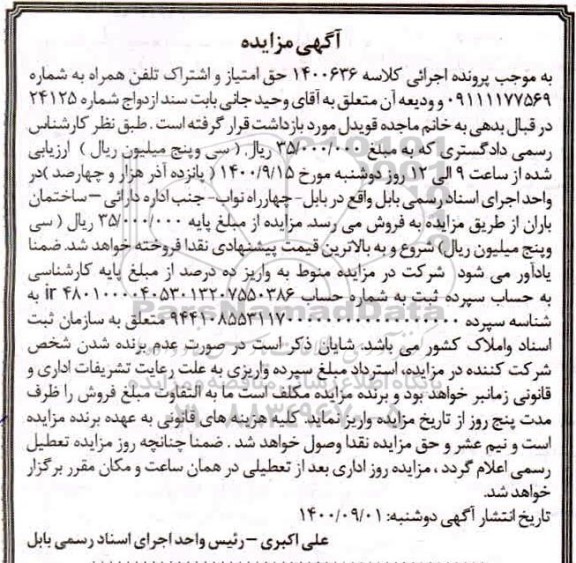 آگهی مزایده
به موجب پرونده اجرائی کلاسه ۱۴۰۰۶۳۶ حق امتیاز و اشتراک تلفن همراه به شماره
۰۹۱۱۱۱۷۷۵۶۹ و ودیعه آن متعلق به آقای وحید جانی بابت سند ازدواج شماره ۲۴۱۲۵
در قبال بدهی به خانم ماجده قویدل مورد بازداشت قرار گرفته است . طبق نظر کارشناس
رسمی دادگستری که به مبلغ ۳۵/۰۰۰/۰۰۰ ریال ( سی وپنج میلیون ریال ) ارزیابی
شده از ساعت ۹ الی ۱۲ روز دوشنبه مورخ ۱۴۰۰/۹/۱۵ ( پانزده آذر هزار و چهارصد )در
واحد اجرای اسناد رسمی بابل واقع در بابل- چهارراه نواب- جنب اداره دارائی – ساختمان
باران از طریق مزایده به فروش می رسد. مزایده از مبلغ پایه ۳۵/۰۰۰/۰۰۰ ریال ( سی
وپنج میلیون ریال) شروع و به بالاترین قیمت پیشنهادی نقدا فروخته خواهد شد. ضمنا
یادآور می شود شرکت در مزایده منوط به واریز ده درصد از مبلغ پایه کارشناسی
به حساب سپرده ثبت به شماره حساب ir ۴۸۰۱۰۰۰۰۴۰۵۳۰۱۳۲۰۷۵۵۰۳۸۶ به
شناسه سپرده متعلق به سازمان ثبت
اسناد واملاک کشور می باشد. شایان ذکر است در صورت عدم برنده شدن شخص
شرکت کننده در مزایده، استرداد مبلغ سپرده واریزی به علت رعایت تشریفات اداری و
قانونی زمانبر خواهد بود و برنده مزایده مکلف است ما به التفاوت مبلغ فروش را ظرف
مدت پنج روز از تاریخ مزایده واریز نماید. کلیه هزینه های قانونی به عهده برنده مزایده
است و نیم عشر و حق مزایده نقدا وصول خواهد شد . ضمنا چنانچه روز مزایده تعطیل
رسمی اعلام گردد ، مزایده روز اداری بعد از تعطیلی در همان ساعت و مکان مقرر برگزار
خواهد شد.
تاریخ انتشار آگهی دوشنبه: ۱۴۰۰/۰۹/۰۱
علی اکبری – رئیس واحد اجرای اسناد رسمی بابل